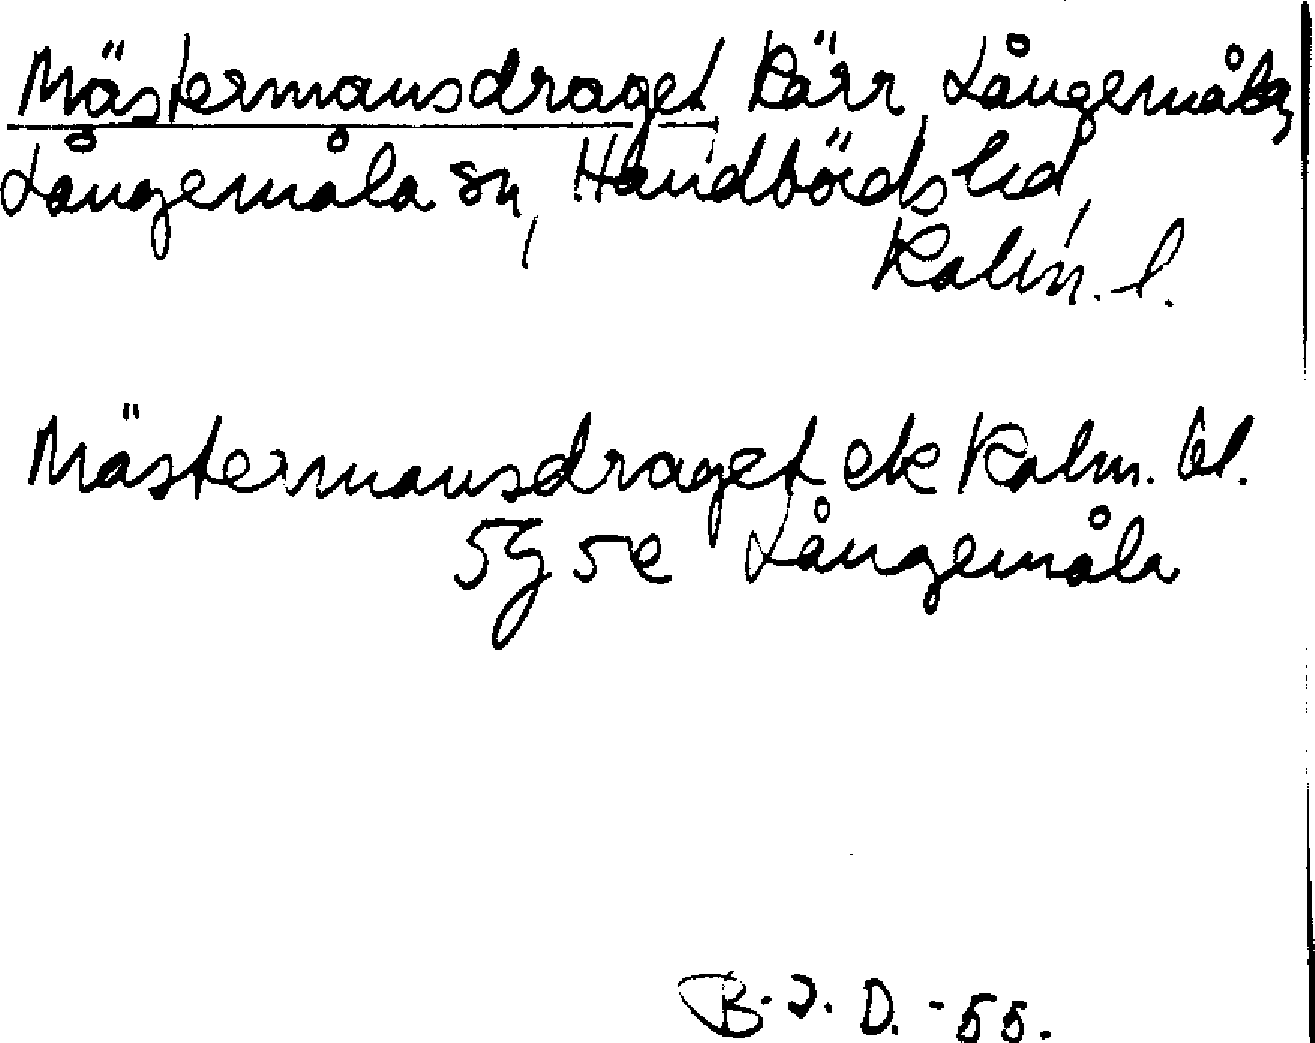 Mästermansdraget kärr Långemåla,
Långemåla sn, Handbörds hd,
Kalm. l.
Mästermansdraget ek Kalm. bl.
5g 5e Långemåla
B. J. D. -55.